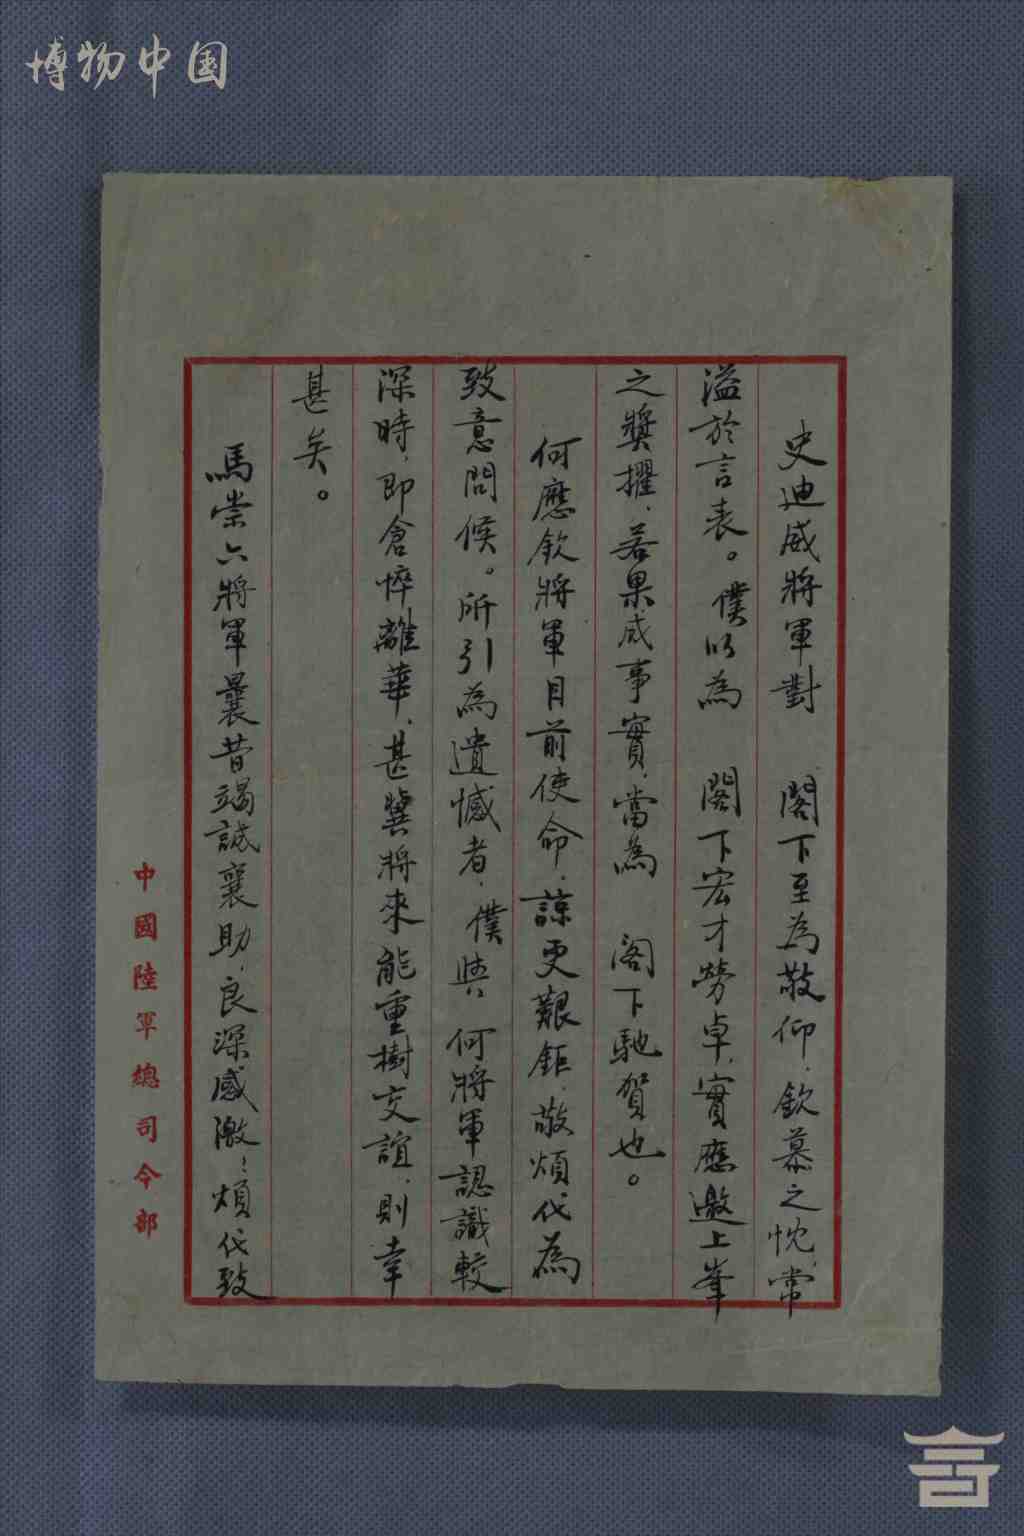 博物中国
史迪威將軍對　閣下至為敬仰，欽慕之忱，常
溢於言表。僕以為　閣下宏才勞卓，實應邀上峯
之獎擢，若果成事實，當為　閣下馳賀也。
何應欽將軍目前使命，諒更艱鉅，敬煩代為
致意問候。所引為遺憾者，僕與　何將軍認識較
深時，即倉悴離華，甚冀將來能重樹交誼，則幸
甚矣。
馬崇六將軍曩昔竭誠襄助，良深感激！煩代致
中國陸軍總司令部